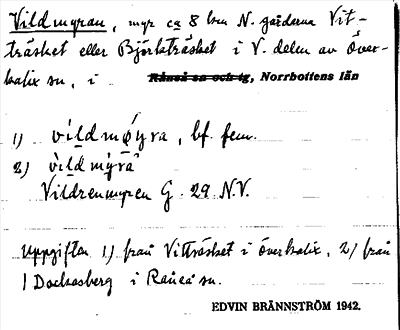 Vildmyran, myr ca 8 km N. gårdarna Vit-
träsket eller Björkträsket i V. delen av Över-
kalix sn, i Råneå sn och tg, Norrbottens län
1) vildmøyra, bf. fem.
2) vildmỳrą
Vildrenmyren G. 29 N.V.
Uppgifter 1) från Vitträsket i Överkalix, 2) från
Dockasberg i Råneå sn.
EDVIN BRÄNNSTRÖM 1942.